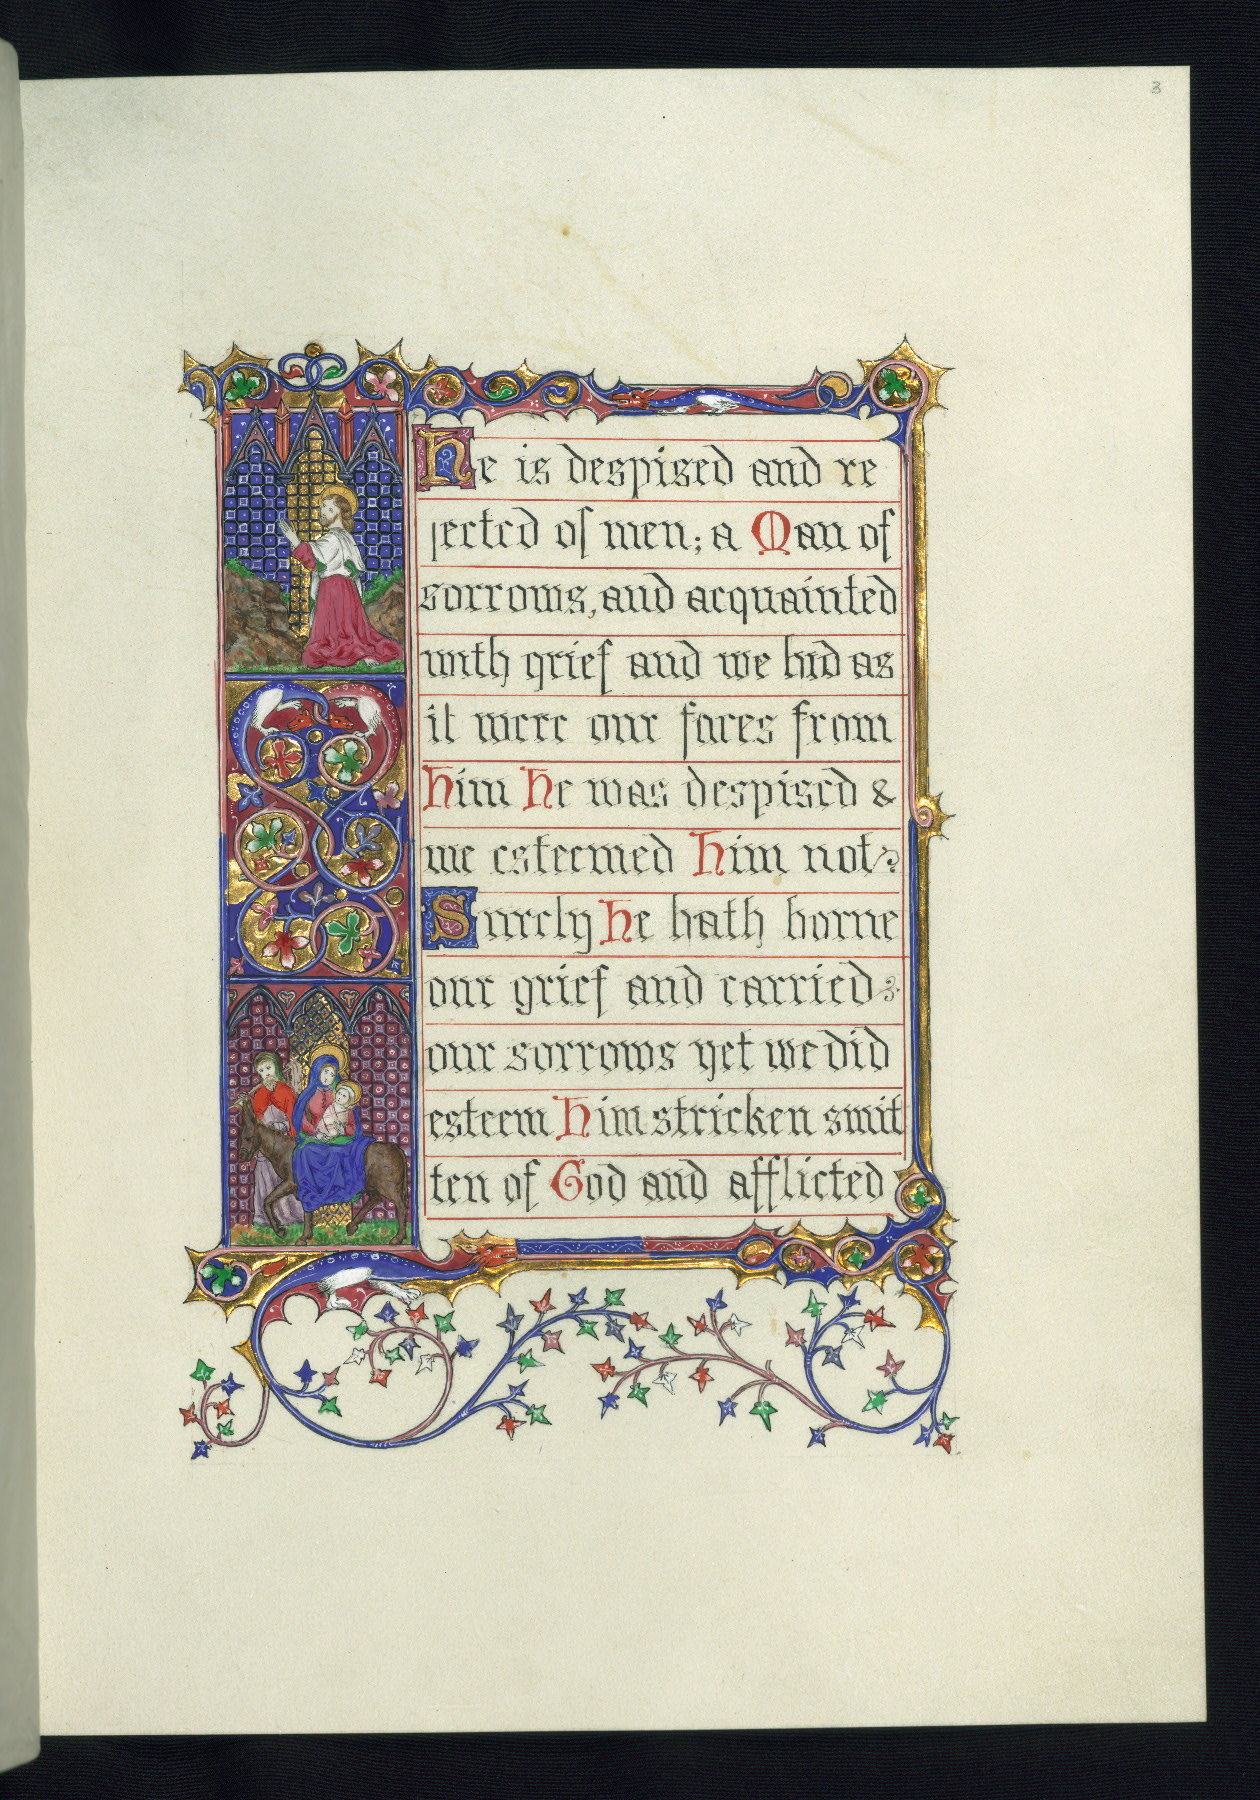 3
He is despised and re
jected of men; a Man of
sorrows, and acquainted
with grief and we hid as
it were our faces from
Him He was despised &
we esteemed Him not
Surely He hath borne
our grief and carried
our sorrows yet we did
esteem Him stricken smit
ten of God and afflicted